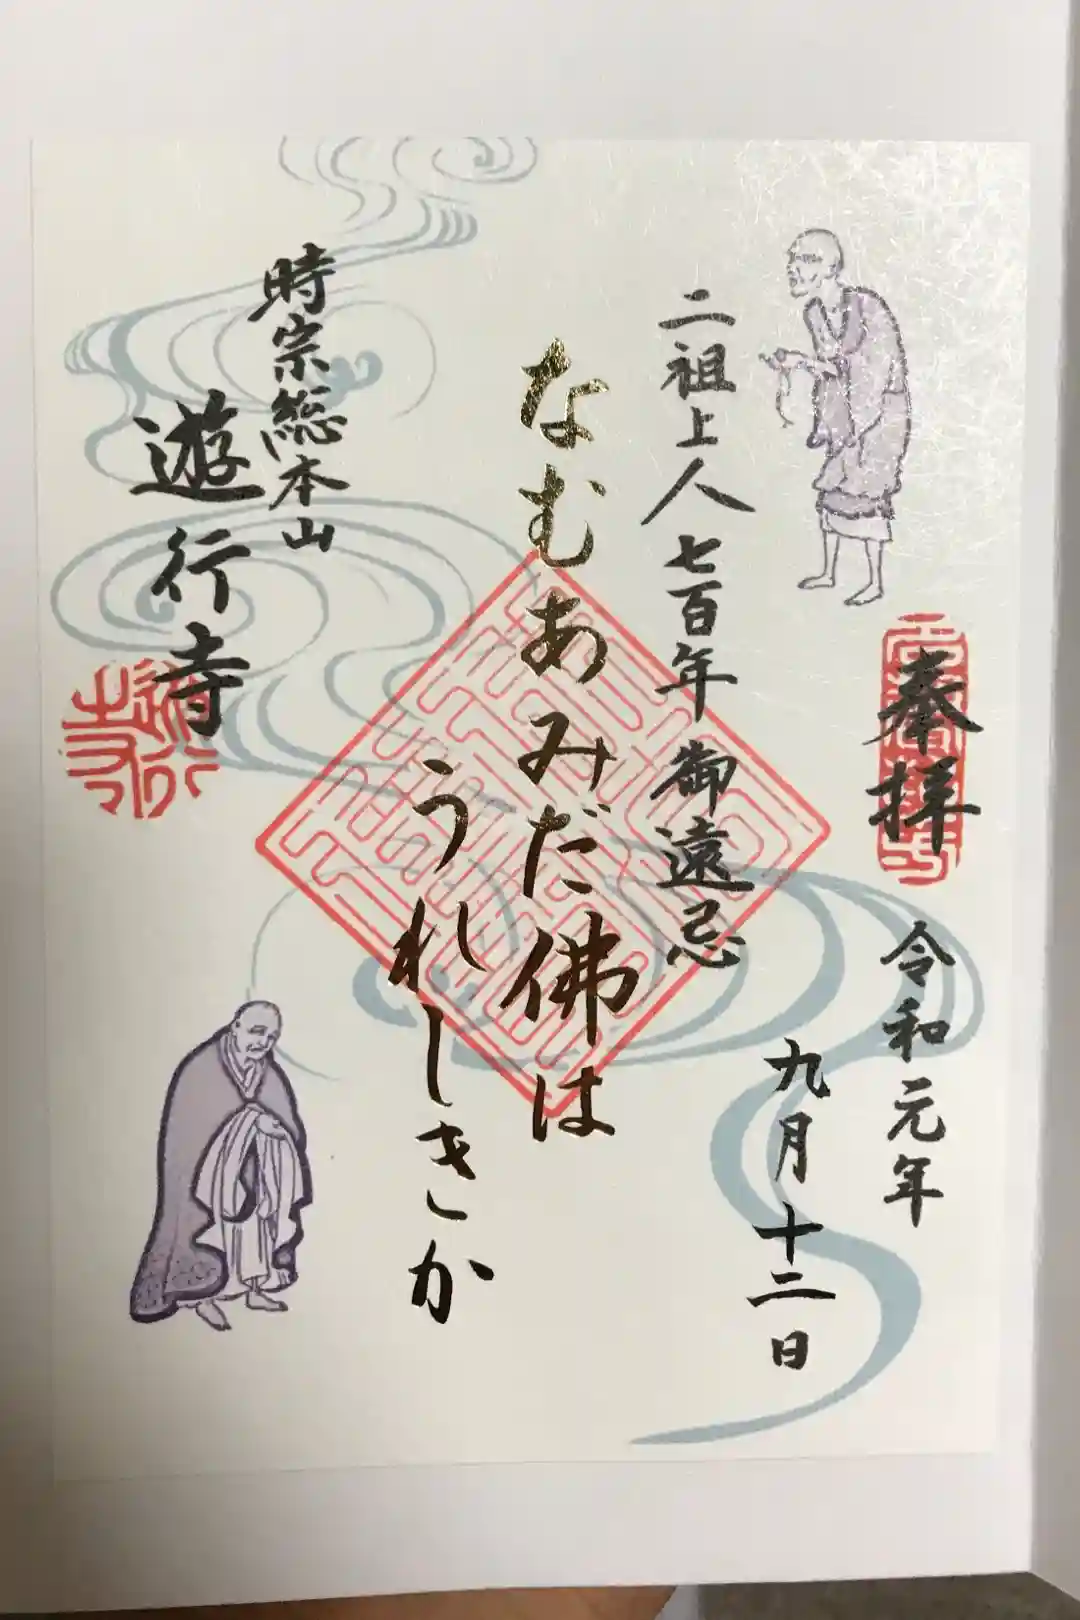 奉拝
令和元年
九月十二日
二祖上人七百年御遠忌
なむあみだ佛は
うれしきか
時宗総本山
遊行寺
遊行寺